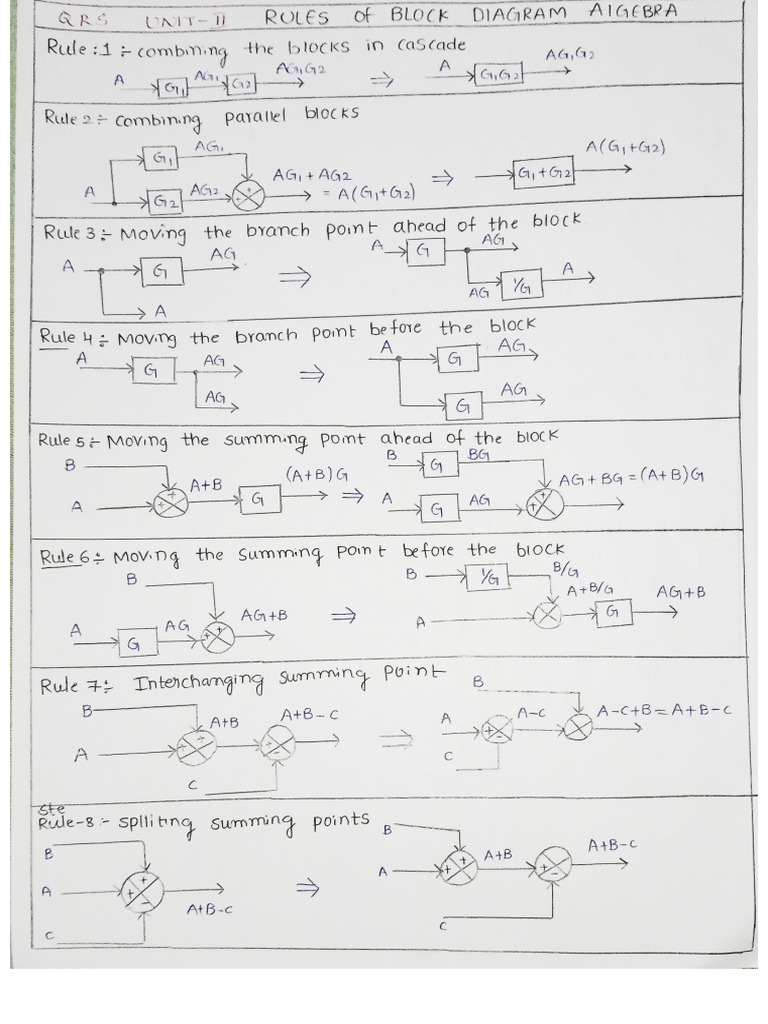 QRS UNIT-II RULES of BLOCK DIAGRAM AlGEBRA
Rule:1 :- combining the blocks in cascade
A G1 AG1 G2 AG1G2 ⇒ A G1G2 AG1G2
Rule 2 :- combining parallel blocks
G1 AG1 A(G1+G2)
AG1 + AG2 ⇒ G1+G2
A G2 AG2 + + = A(G1+G2)
Rule 3 :- Moving the branch point ahead of the block
A G AG ⇒ A G AG
A AG 1/G A
Rule 4 :- Moving the branch point before the block
A G AG ⇒ A G AG
AG G AG
Rule 5 :- Moving the summing point ahead of the block
B B G BG
A + + A+B G (A+B)G ⇒ A G AG + + AG+BG=(A+B)G
Rule 6 :- Moving the summing point before the block
B B 1/G B/G
A G AG + + AG+B ⇒ A A+B/G G AG+B
Rule 7 :- Interchanging summing point
B B
A + + A+B + - A+B-C ⇒ A + - A-C A-C+B=A+B-C
C C
Ste
Rule-8 :- splliting summing points
B B
A + + - A+B-C ⇒ A + + A+B + - A+B-C
C C